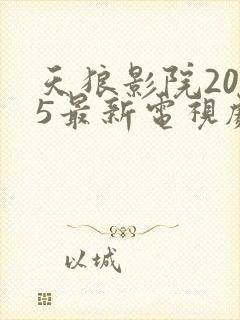 天狼影院20
5最新電視
以城